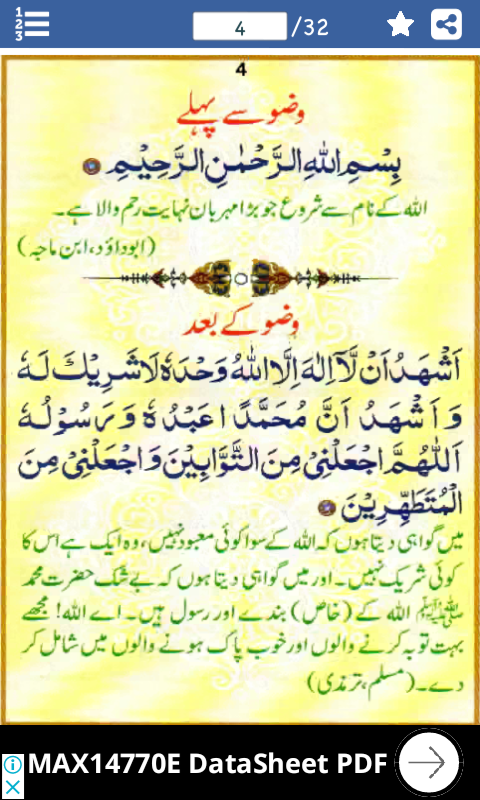 1
2
3
4 /32
4
وضو سے پہلے
بِسْمِ اللهِ الرَّحْمٰنِ الرَّحِيْمِ
اللہ کے نام سے شروع جو بڑا مہربان نہایت رحم والا ہے۔
(ابوداؤد، ابن ماجہ)
وضو کے بعد
اَشْهَدُ اَنْ لَّآ اِلٰهَ اِلَّا اللهُ وَحْدَهٗ لَا شَرِيْكَ لَهٗ
وَ اَشْهَدُ اَنَّ مُحَمَّدًا عَبْدُهٗ وَ رَسُوْلُهٗ
اَللّٰهُمَّ اجْعَلْنِيْ مِنَ التَّوَّابِيْنَ وَاجْعَلْنِيْ مِنَ
الْمُتَطَهِّرِيْنَ
میں گواہی دیتا ہوں کہ اللہ کے سوا کوئی معبود نہیں، وہ ایک ہے اس کا
کوئی شریک نہیں۔ اور میں گواہی دیتا ہوں کہ بے شک حضرت محمد
ﷺ اللہ کے (خاص) بندے اور رسول ہیں۔ اے اللہ! مجھے
بہت توبہ کرنے والوں اور خوب پاک ہونے والوں میں شامل کر
دے۔ (مسلم، ترمذی)
MAX14770E DataSheet PDF